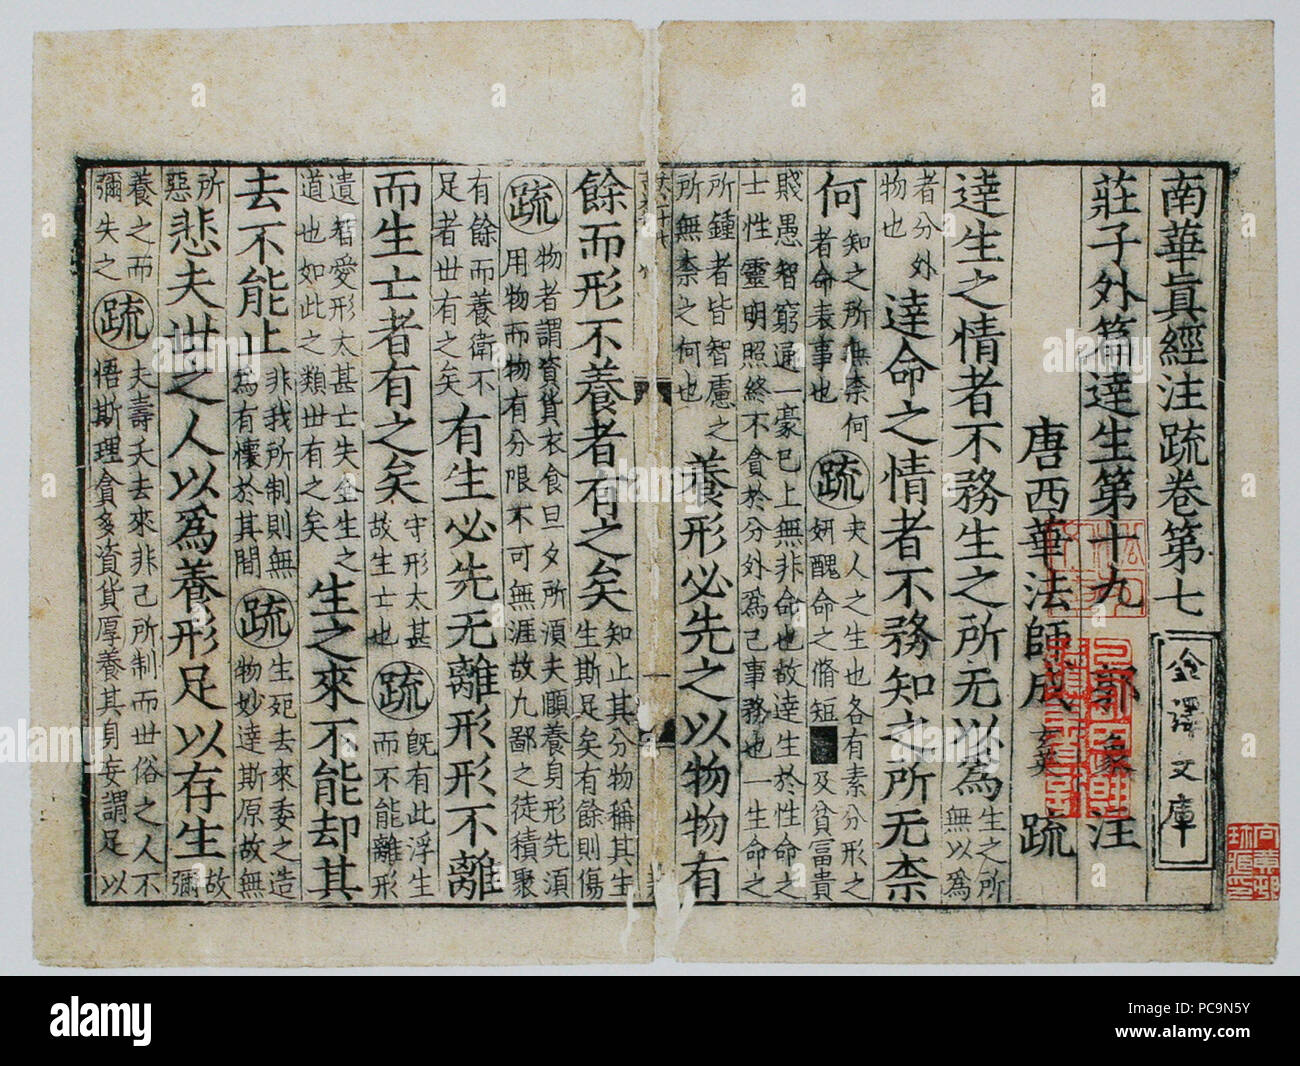 南華真經注疏卷第七
金澤文庫
莊子外篇達生第十九 郭 象 注
唐西華法師成 玄英 疏
達生之情者不務生之所无以為 生之所無以為
者分外物也 達命之情者不務知之所无柰
何 知之所無柰何者命表事也 疏 夫人之生也各有素分形之妍醜命之脩短 及貧富貴
賤愚智窮通一豪已上無非命也故達生於性命之士性靈明照終不貪於分外為己事務也一生命之
所鍾者皆智慮之所無柰之何也 養形必先之以物物有
餘而形不養者有之矣 知止其分物稱其生生斯足矣有餘則傷
疏 物者謂資貨衣食旦夕所須夫頤養身形先須用物而物有分限不可無涯故凡鄙之徒積聚
有餘而養衛不足者世有之矣 有生必先无離形形不離
而生亡者有之矣 守形太甚故生亡也 疏 既有此浮生而不能離形
遺智愛形太甚亡失全生之道也如此之類世有之矣 生之來不能却其
去不能止 非我所制則無為有懷於其間 疏 生死去來委之造物妙達斯原故無
所惡 悲夫世之人以為養形足以存生 故彌
養之而彌失之 疏 夫壽夭去來非己所制而世俗之人不悟斯理貪多資貨厚養其身妄謂足以
alamy
Image ID: PC9N5Y
www.alamy.com